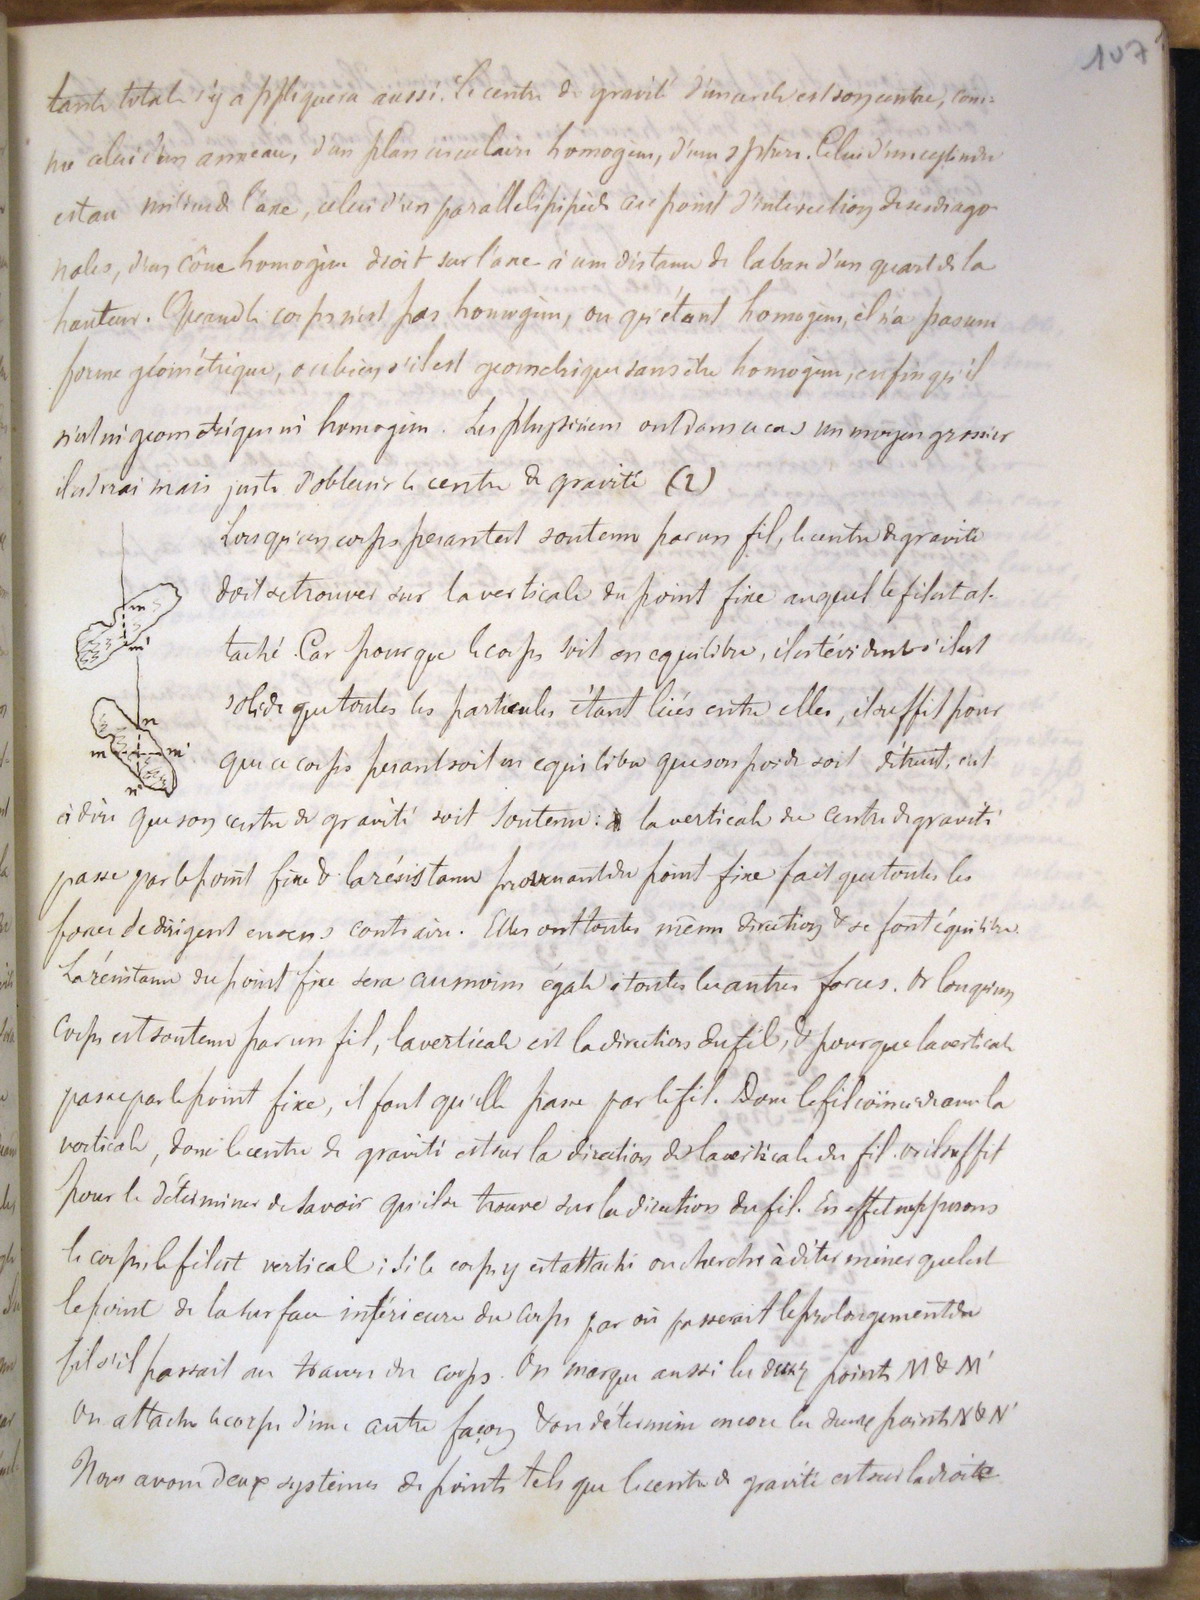 107
tante totale s'y appliquera aussi. Le centre de gravité d'un cercle est son centre, com-
me celui d'un anneau, d'un plan circulaire homogène, d'une sphère. Celui d'un cylindre
est au milieu de l'axe, celui d'un parallélipipède au point d'intersection de ses diago
nales, d'un cône homogène droit sur l'axe à une distance de la base d'un quart de la
hauteur. Quand le corps n'est pas homogène, ou qu'étant homogène, il n'a pas une
forme géométrique, ou bien s'il est geometrique sans être homogène, enfin qu'il
n'est ni geometrique ni homogène. Les physiciens ont dans ce cas un moyen grossier
il est vrai mais juste d'obtenir le centre de gravité (1)
Lorsqu'un corps pesant est soutenu par un fil, le centre de gravité
doit se trouver sur la verticale du point fixe auquel le fil est at-
taché. Car pour que le corps soit en equilibre, il est évident s'il est
solide que toutes les particules étant liées entre elles, il suffit pour
que ce corps pesant soit en equilibre que son poids soit détruit, c'est
à dire que son centre de gravité soit soutenu : la verticale du centre de gravité
passe par le point fixe & la résistance provenant du point fixe fait que toutes les
forces se dirigent en sens contraire. Elles ont toutes même direction & se font équilibre.
La résistance du point fixe sera au moins égale à toutes les autres forces. Or lorsqu'un
corps est soutenu par un fil, la verticale est la direction du fil, & pour que la verticale
passe par le point fixe, il faut qu'elle passe par le fil. Donc le fil coïncide avec la
verticale, donc le centre de gravité est sur la direction de la verticale du fil. Or il suffit
pour le déterminer de savoir qu'il se trouve sur la direction du fil. En effet supposons
le corps le fil est vertical ; si le corps y est attaché on cherche à déterminer quel est
le point de la surface inférieure du corps par où passerait le prolongement du
fil s'il passait au travers du corps. On marque aussi les deux points M & M'
On attache le corps d'une autre façon & on détermine encore les deux points N & N'
Nous avons deux systèmes de points tels que le centre de gravité est sur la droite
m
m'
n
m
m'
n'